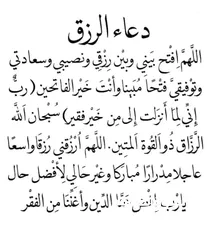 دعاء الرزق
اللهم إفتح بيني وبين رزقي ونصيبي وسعادتي
وتوفيقي فتحاً مبيناً وأنت خير الفاتحين (ربّ
إنّي لما أنزلت إلي من خير فقير) سبحان الله
الرزّاق ذو القوة المتين. اللهم ارزقني رزقاً واسعاً
عاجلاً مدراراً مباركاً وغير حالي لأفضل حال
يارب الدين وأغننا من الفقر